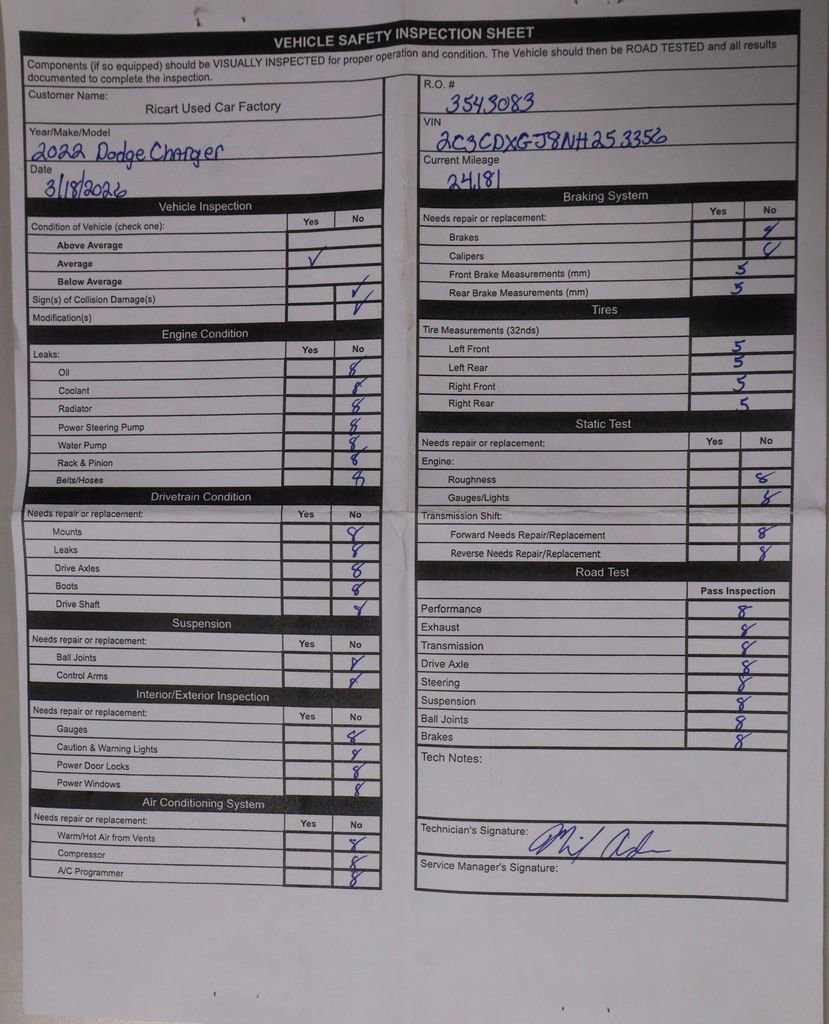 VEHICLE SAFETY INSPECTION SHEET
Components (if so equipped) should be VISUALLY INSPECTED for proper operation and condition. The Vehicle should then be ROAD TESTED and all results
documented to complete the inspection.
Customer Name:
Ricart Used Car Factory
Year/Make/Model
2022 Dodge Charger
Date
3/18/2026
Vehicle Inspection
Condition of Vehicle (check one): Yes No
Above Average
Average ✓
Below Average
Sign(s) of Collision Damage(s) ✓
Modification(s) ✓
Engine Condition
Leaks: Yes No
Oil 8
Coolant 8
Radiator 8
Power Steering Pump 8
Water Pump 8
Rack & Pinion 8
Belts/Hoses 8
Drivetrain Condition
Needs repair or replacement: Yes No
Mounts 8
Leaks 8
Drive Axles 8
Boots 8
Drive Shaft 8
Suspension
Needs repair or replacement: Yes No
Ball Joints
Control Arms
Interior/Exterior Inspection
Needs repair or replacement: Yes No
Gauges 8
Caution & Warning Lights 8
Power Door Locks 8
Power Windows 8
Air Conditioning System
Needs repair or replacement: Yes No
Warm/Hot Air from Vents 8
Compressor 8
A/C Programmer 8
R.O. #
3543083
VIN
2C3CDXGJ8NH253356
Current Mileage
24,181
Braking System
Needs repair or replacement: Yes No
Brakes
Calipers
Front Brake Measurements (mm) 5
Rear Brake Measurements (mm) 5
Tires
Tire Measurements (32nds)
Left Front 5
Left Rear 5
Right Front 5
Right Rear 5
Static Test
Needs repair or replacement: Yes No
Engine:
Roughness 8
Gauges/Lights 8
Transmission Shift:
Forward Needs Repair/Replacement 8
Reverse Needs Repair/Replacement 8
Road Test
Pass Inspection
Performance 8
Exhaust 8
Transmission 8
Drive Axle 8
Steering 8
Suspension 8
Ball Joints 8
Brakes 8
Tech Notes:
Technician's Signature:
Service Manager's Signature: